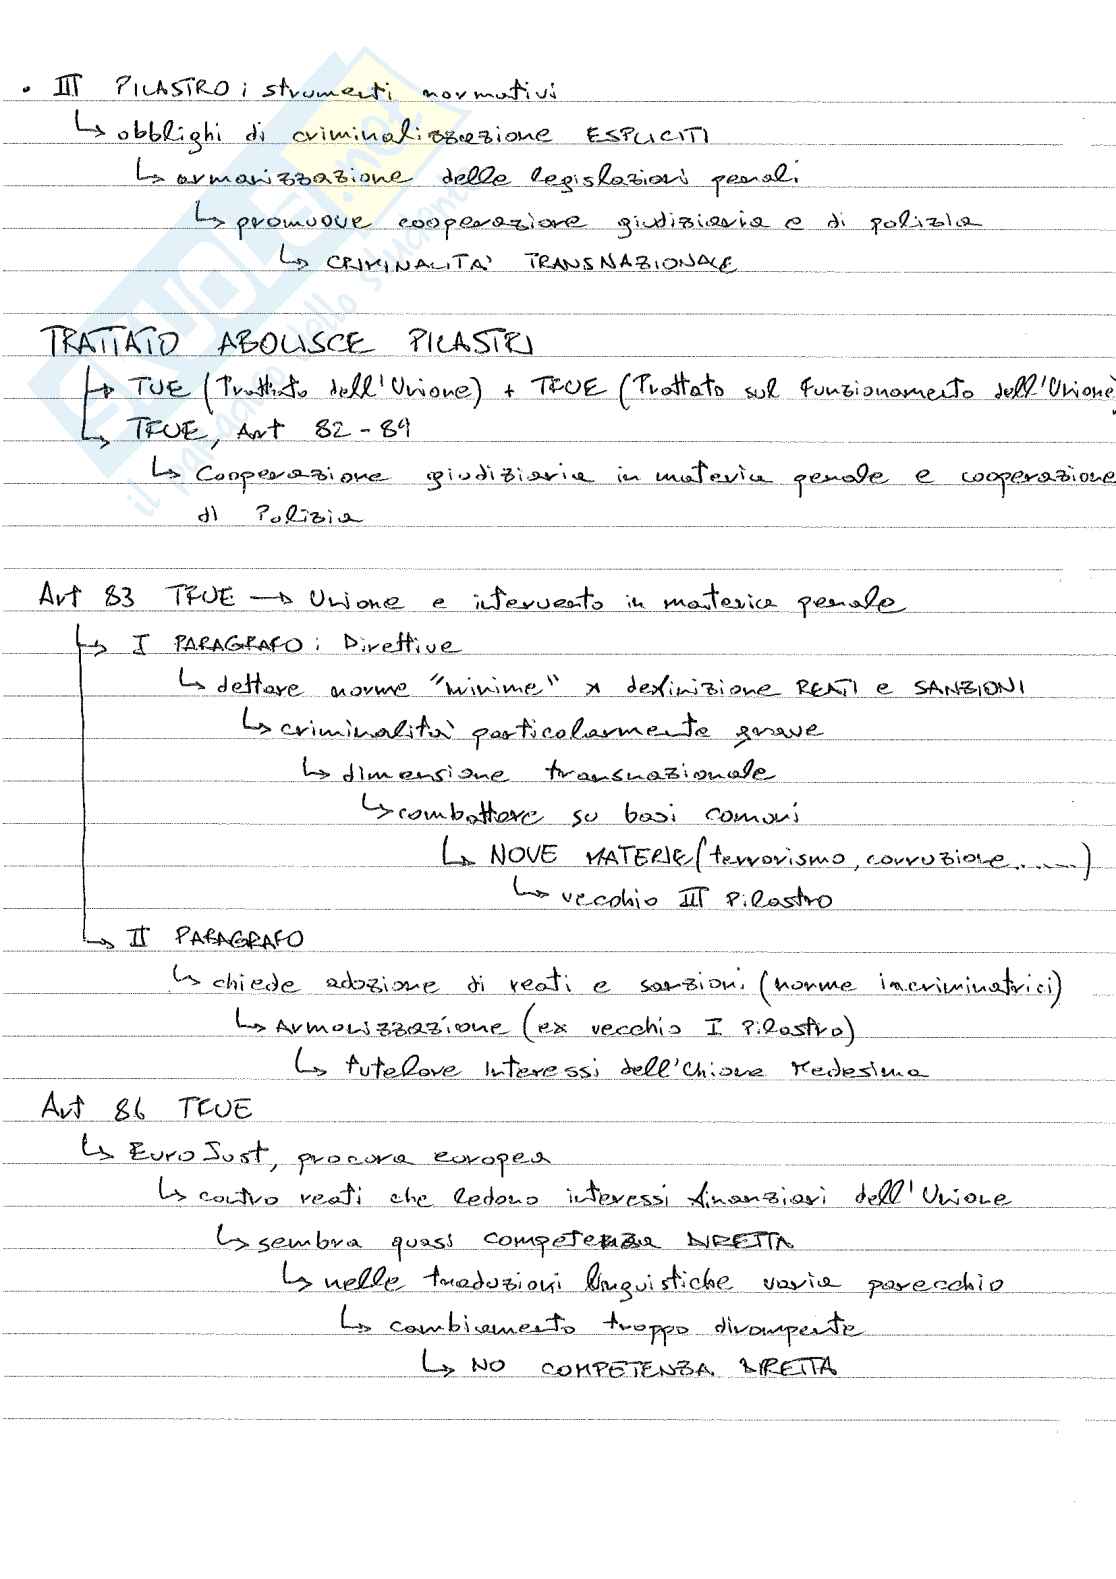 • III PILASTRO: strumenti normativi
↳ obblighi di criminalizzazione ESPLICITI
↳ armonizzazione delle legislazioni penali
↳ promuove cooperazione giudiziaria e di polizia
↳ CRIMINALITA' TRANSNAZIONALE
TRATTATO ABOLISCE PILASTRI
↳ TUE (Trattato dell'Unione) + TFUE (Trattato sul Funzionamento dell'Unione)
↳ TFUE, Art 82-89
↳ Cooperazione giudiziaria in materia penale e cooperazione
di Polizia
Art 83 TFUE → Unione e intervento in materia penale
↳ I PARAGRAFO: Direttive
↳ dettare norme "minime" x definizione REATI e SANZIONI
↳ criminalità particolarmente grave
↳ dimensione transnazionale
↳ combattere su basi comuni
↳ NOVE MATERIE (terrorismo, corruzione......)
↳ vecchio III Pilastro
↳ II PARAGRAFO
↳ chiede adozione di reati e sanzioni (norme incriminatrici)
↳ Armonizzazione (ex vecchio I Pilastro)
↳ tutelare interessi dell'Unione Medesima
Art 86 TFUE
↳ EuroJust, procura europea
↳ contro reati che ledono interessi finanziari dell'Unione
↳ sembra quasi competenza DIRETTA
↳ nelle traduzioni linguistiche varia parecchio
↳ cambiamento troppo dirompente
↳ NO COMPETENZA DIRETTA